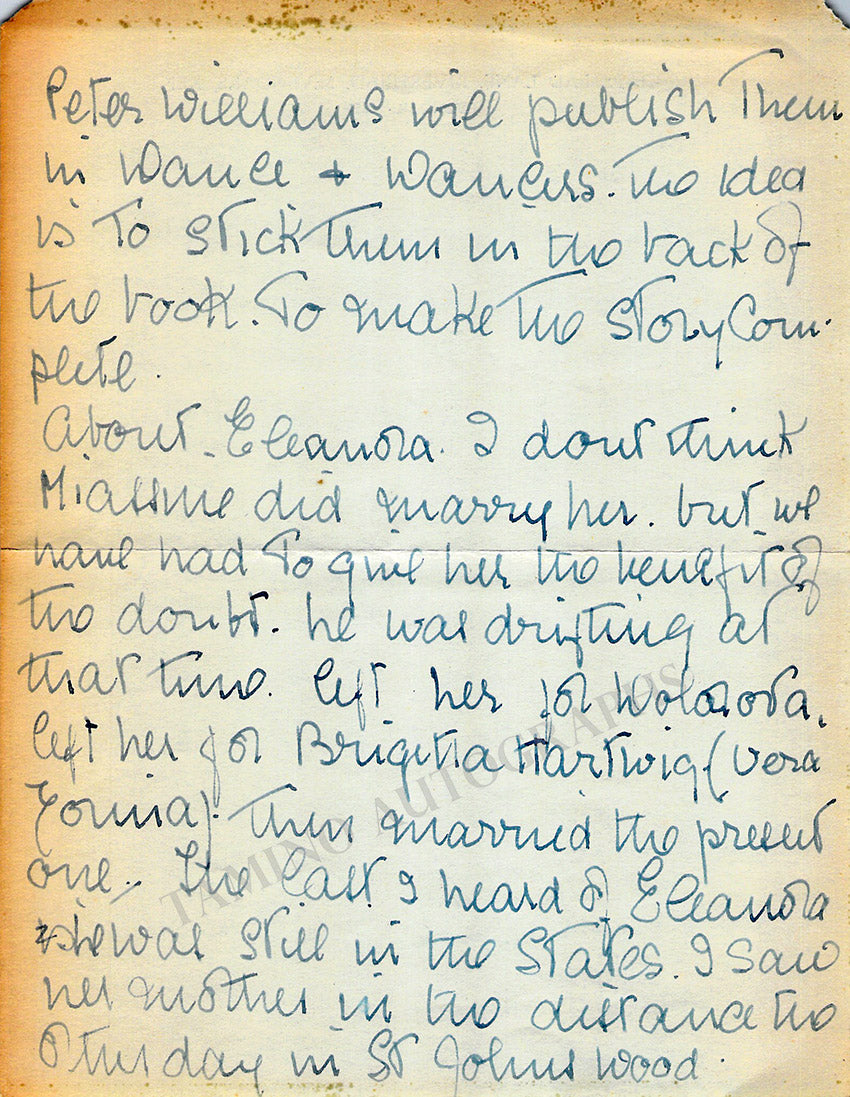 Peter Williams will publish Them
in Dance + Dancers. The idea
is To stick Them in the back of
the book. To make The Story Com-
plete.
About Eleanora. I dont think
Miassine did marry her. but we
have had To give her the benefit of
the doubt. he was drifting at
that time. left her for
left her for Brigitta Hartwig (Vera
Zorina). Then married the present
one.. The last I heard of Eleanora
she was still in the States. I saw
her mother in the distance the
Other day in St Johns Wood.
TAMINO AUTOGRAPHS